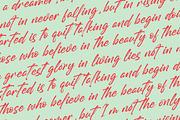 a dreamer
not in never falling, but in rising
started is to quit talking and begin doing
those who believe in the beauty of their
e greatest glory in living lies not in n
started is to quit talking and begin do
those who believe in the beauty of the
a dreamer, but I'm not the only